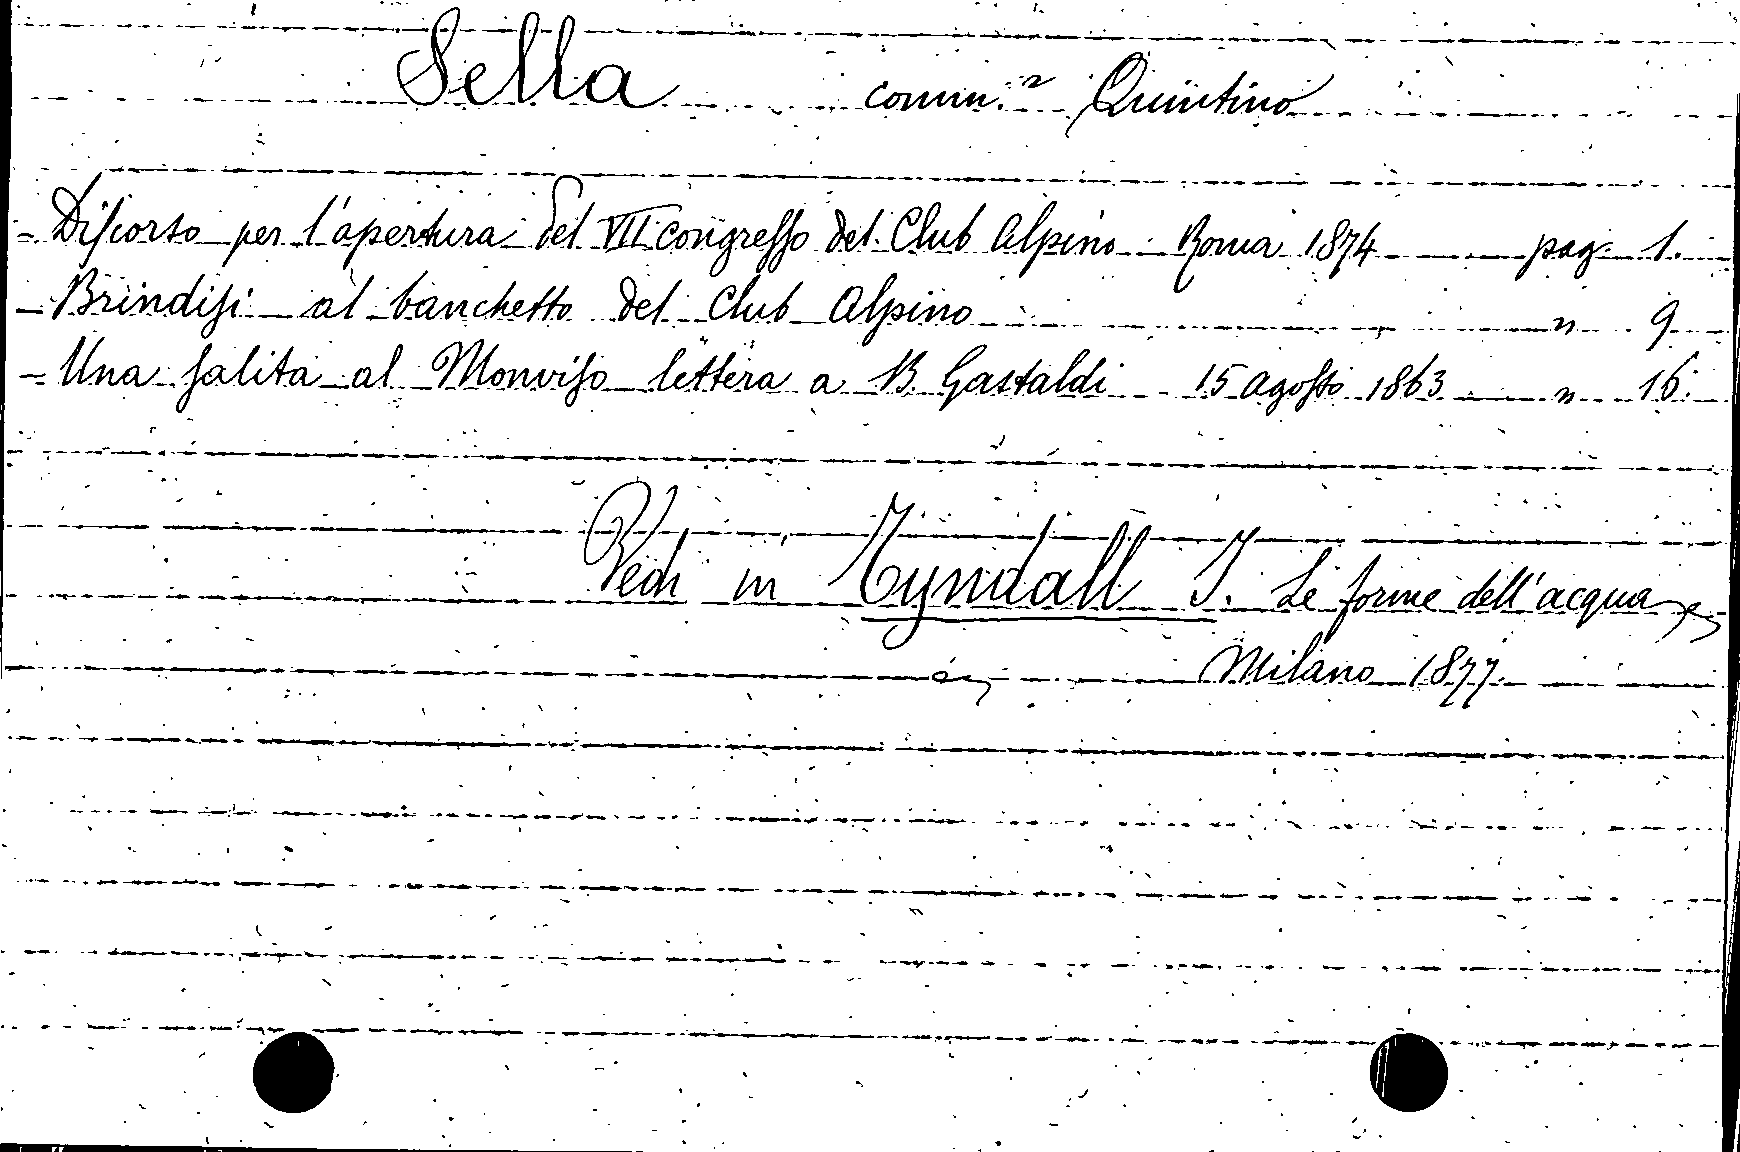 Sella comm.r Quintino
- Discorso per l'apertura del VII congresso del Club Alpino Roma 1874 pag. 1.
- Brindisi al banchetto del Club Alpino " 9
- Una salita al Monviso lettera a B. Gastaldi 15 agosto 1863 " 16.
Vedi in Tyndall J. Le forme dell'acqua
Milano 1877.